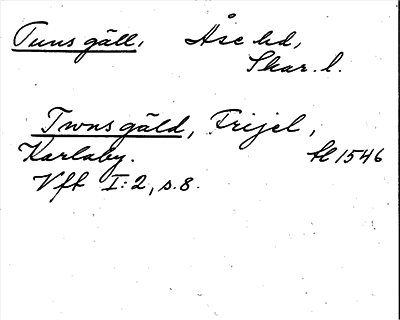 Tunsgäll, Åse hd,
Skar. l.
Twnsgäld, Frijel,
Karlaby. hl 1546
Vft I:2, s. 8.